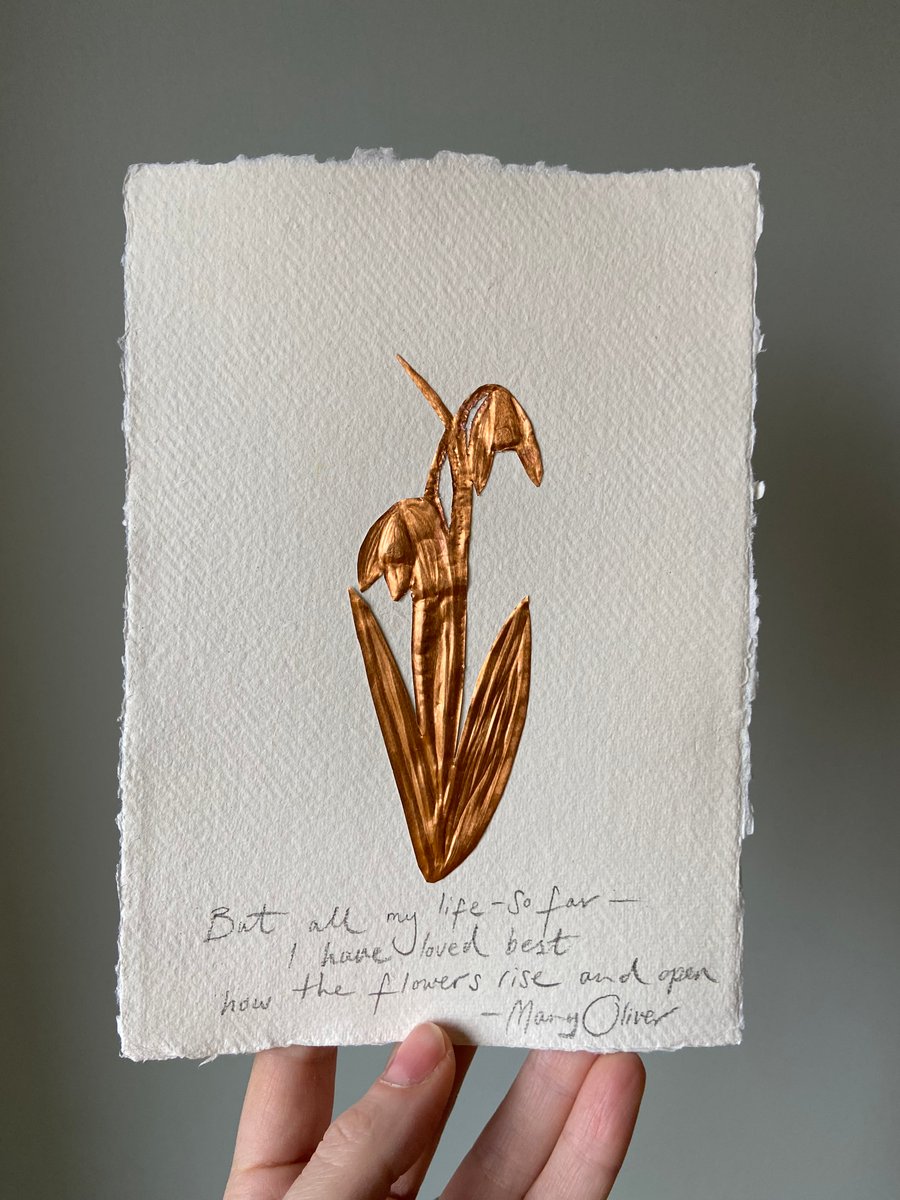 But all my life - So far —
I have loved best
how the flowers rise and open
- Mary Oliver